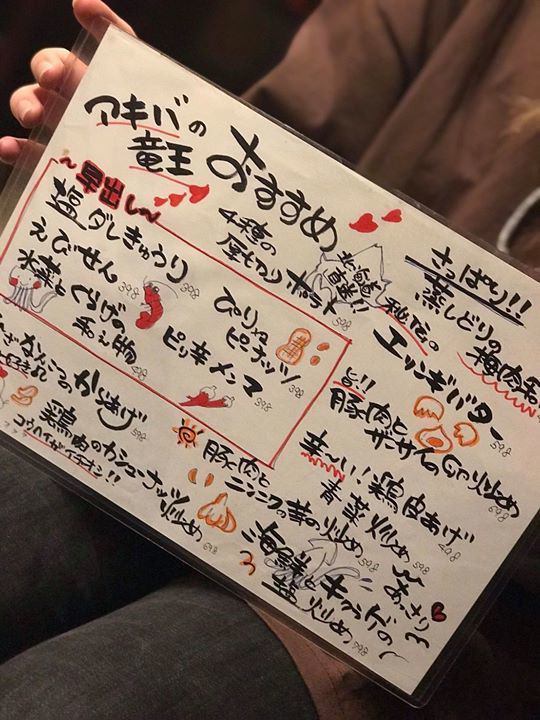 アキバの
竜王
おすすめ
〜早出し〜
塩ダレきゅうり
398
えびせん
398
水菜と
くらげの
和え物
498
ぴり辛
ピーナッツ
398
ピリ辛メンマ
398
4種の
厚切りポテト
598
さっぱり!!
蒸しどりの梅肉
秘伝の
エリンギバター
598
旨!!
豚肉と
ザーサイの
炒め
698
辛〜い!!
鶏皮あげ
498
青菜炒め
598
なんこつのからあげ
598
鶏肉のカシューナッツ
炒め
698
コウハイがイチオシ!!
豚肉と
ニンニクの芽の炒め
598
〜あっさり〜
海鮮と
キクラゲの
塩炒め
598